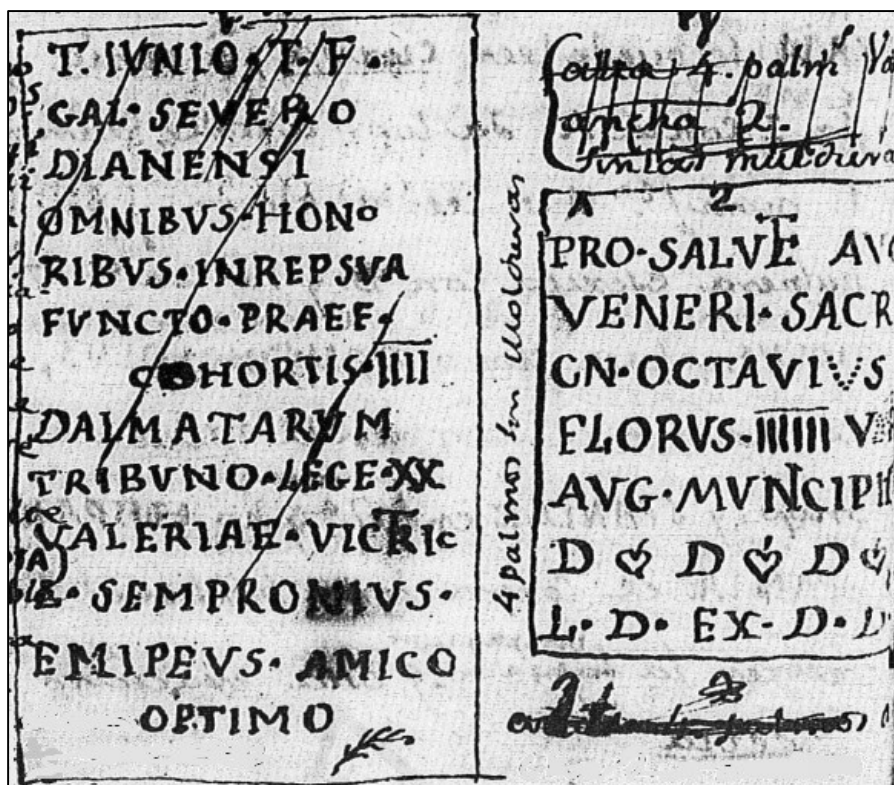 T. IVNIO · T · F ·
GAL · SEVERO
DIANENSI
OMNIBVS · HONO
RIBVS · INREPSVA
FVNCTO · PRAEF ·
COHORTIS · IIII
DALMATARVM
TRIBVNO · LEGE · XX
VALERIAE · VICTRIC
L · SEMPRONIVS ·
EMIPEVS · AMICO
OPTIMO
4 palmos sin molduras
alta 4. palm
ancha 2.
sin las molduras
A 2
PRO · SALVTE AVG
VENERI · SACR
CN · OCTAVIVS
FLORVS · IIIIII V
AVG · MVNCIPI
D ❦ D ❦ D ❦
L · D · EX · D · D
palmos